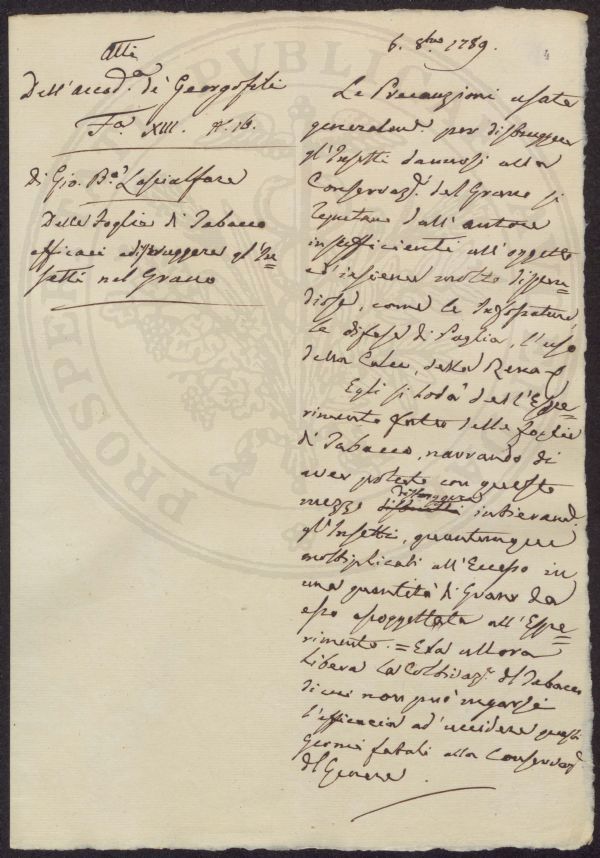 6. 8bre 1789.
4
Atti
Dell'Accad.a de' Georgofili
Fa. XIII. N. 16.
di Gio. B.a Lascialfare
Delle foglie di Tabacco
efficaci a distruggere gl'In=
setti nel Grano
Le Precauzioni usate
generalm.e per distruggere
gl'Insetti dannosi alla
Conservaz.e del Grano si
reputano dall'autore
insufficienti all'oggetto
ed insieme molto dispen=
diose, come le
le difese di Paglia, l'uso
della Calce, della Rena
Egli si loda dell'Espe=
rimento fatto delle foglie
di Tabacco, narrando di
aver potuto con questo
mezzo distruggere intieram.e
gl'Insetti, quantunque
moltiplicati all'Eccesso in
una quantità di Grano da
esso assoggettata all'Espe=
rimento. = Era allora
Libera la Coltivaz.e del Tabacco
di cui non può negarsi
l'efficacia ad uccidere questi
Germi fatali alla Conservaz.e
del Genere.
PROSPERITÀ
PUBLICA